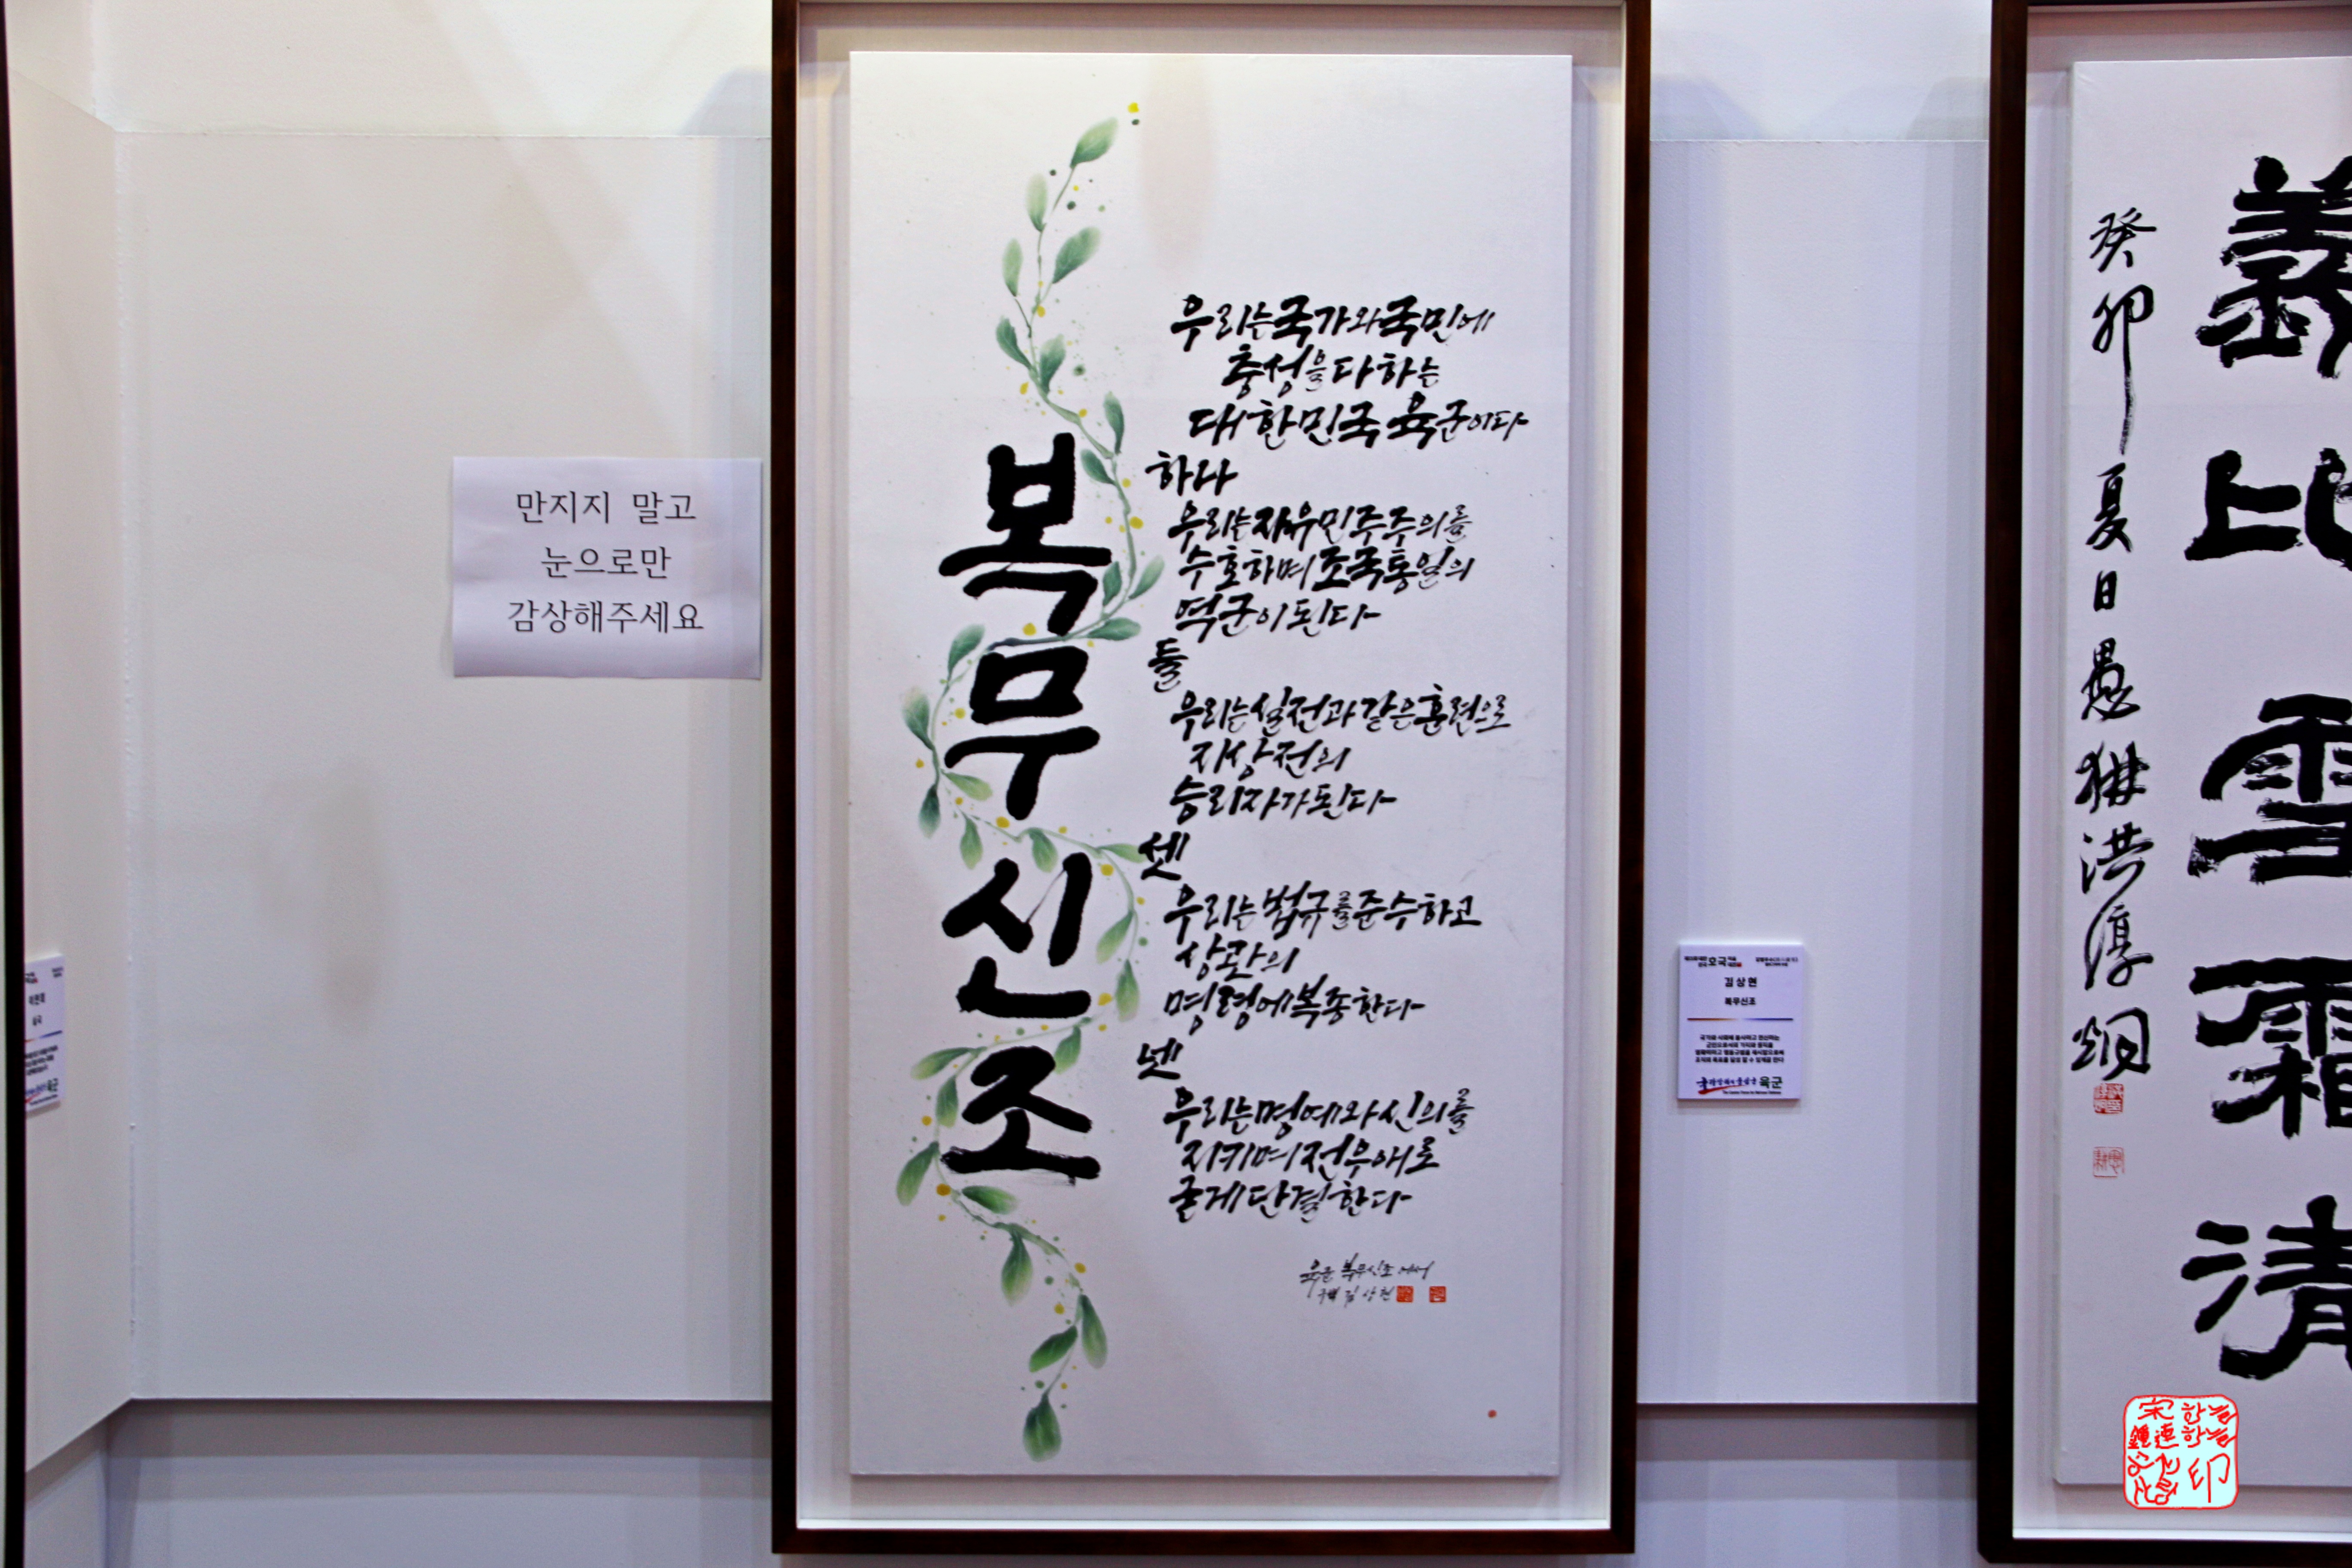 만지지 말고
눈으로만
감상해주세요
복무신조
우리는 국가와 국민에
충성을 다하는
대한민국 육군이다
하나
우리는 자유민주주의를
수호하며 조국통일의
역군이 된다
둘
우리는 실전과 같은 훈련으로
지상전의
승리자가 된다
셋
우리는 법규를 준수하고
상관의
명령에 복종한다
넷
우리는 명예와 신의를
지키며 전우애로
굳게 단결한다
육군 복무신조에서
김상현
호국
김상현
복무신조
국가와 국민에 봉사하고 헌신하는
육군
義比雪霜清
癸卯夏日愚
洪淳炯
印